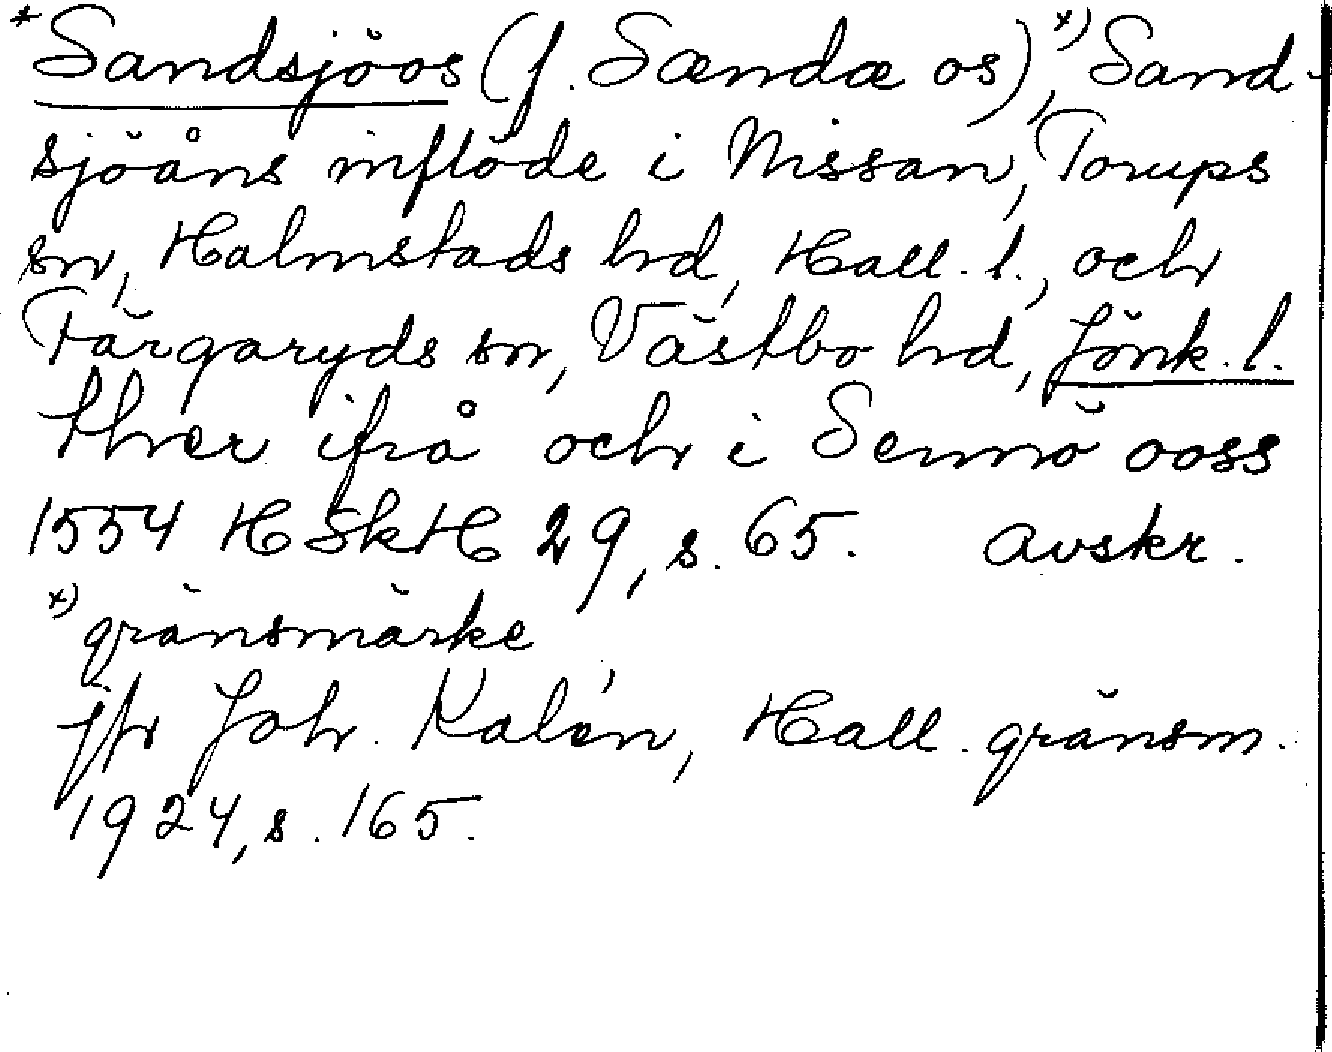 *Sandsjöos (f. Sændæ os),x) Sand-
sjöåns inflöde i Nissan, Torups
sn, Halmstads hd, Hall. l., och
Färgaryds sn, Västbo hd, Jönk. l.
ther ifrå och i Sennö ooss
1554 HSkH 29, s. 65. avskr.
x) gränsmärke
jfr Joh. Kalén, Hall. gränsm.
1924, s. 165.